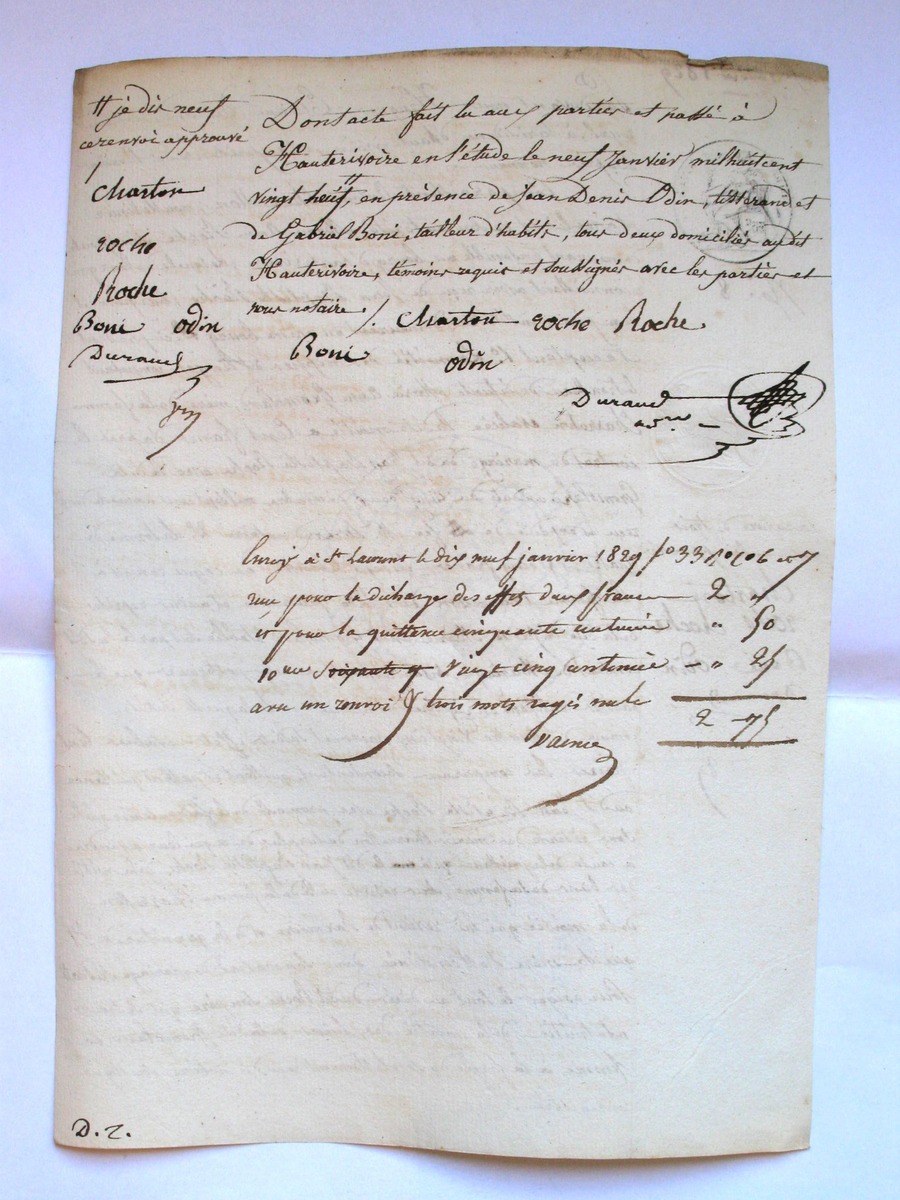 # je dis neuf
ce renvoi approuvé
Charton
roche
Roche
Boni odin
Durand
Dont acte fait lu aux parties et passé à
Hauterivoire en l'étude le neuf Janvier mil huit cent
vingt huit, # en présence de Jean Denis Odin, tisserand et
de Gabriel Boni, tailleur d'habits, tous deux domiciliés audit
Hauterivoire, témoins requis et soussignés avec les parties et
nous notaire /. Charton roche Roche
Boni odin
Durand
nre
Enregé à St Laurent le dix neuf janvier 1829 fo 33 Ro c 6 et 7
reçu pour la décharge des effets deux francs 2 "
et pour la quittance cinquante centimes " 50
10me soixante q vingt cinq centimes - " 25
avec un renvoi & trois mots rayés nuls
2 - 75
D. 2.